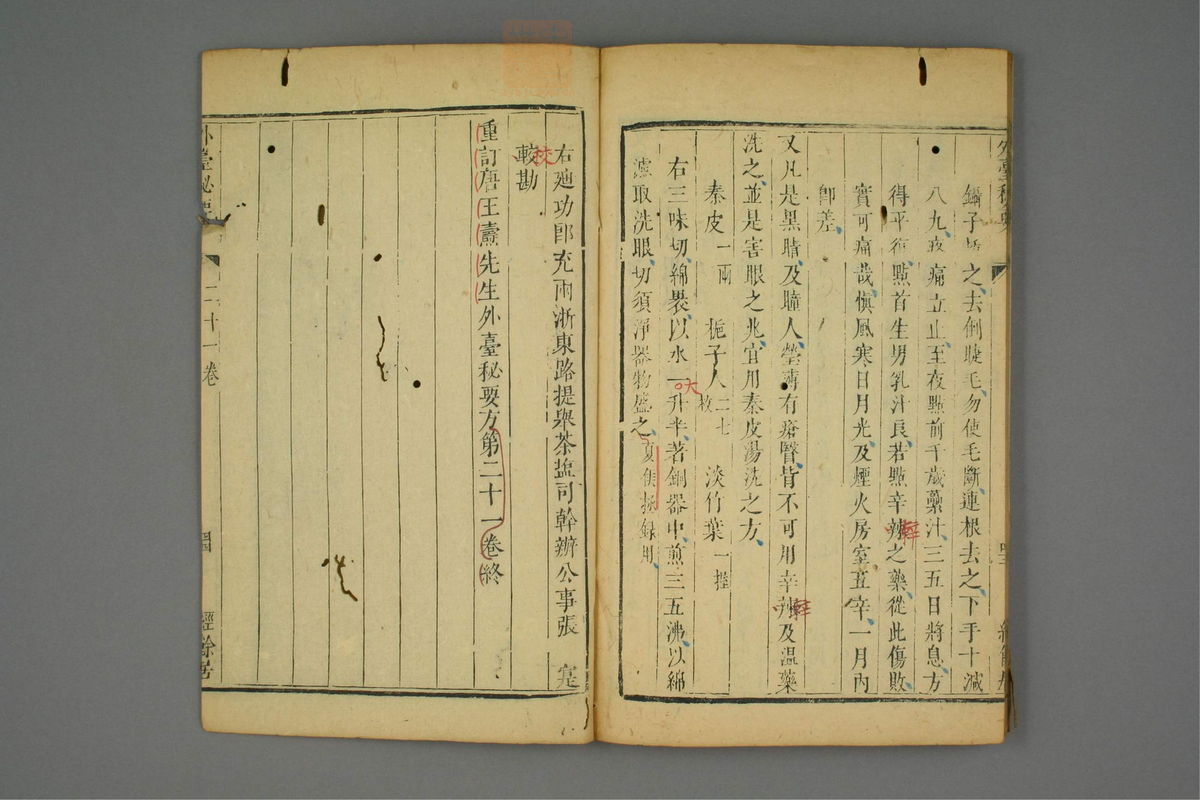 鑷子之去倒睫毛勿使毛斷連根去之下手十減
八九夜痛立止至夜㸃前千歲虆汁三五日將息方
得平復㸃首生男乳汁良若㸃辛辣之藥從此傷敗
實可痛哉愼風寒日月光及煙火房室五辛一月內
卽差
又凡是黑睛及瞳人瑩薄有瘡瞖皆不可用辛辣及温藥
洗之並是害眼之兆宜用秦皮湯洗之方
秦皮一兩 梔子人二七枚 淡竹葉一握
右三味切綿褁以水一大升半著銅器中煎三五沸以綿
濾取洗眼切須淨器物盛之夏侯拯録用
右迪功郎充兩浙東路提舉茶塩司幹辦公事張寔
較勘
校
重訂唐王燾先生外臺秘要方第二十一卷終
外臺秘要 二十一卷 四四 經餘居